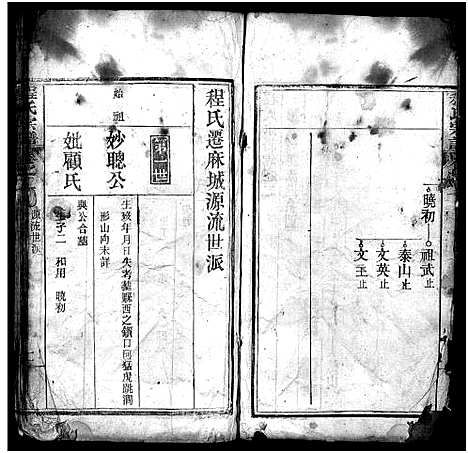 曉初
祖武止
泰山止
文英止
文玉止
程氏遷麻城源流世派
第一世
始祖
妙聰公
生歿年月日失考葬縣西之鎖口河猛虎跳澗
形山向未詳
妣顧氏
與公合墓
生子二 和用 曉初
源流世派